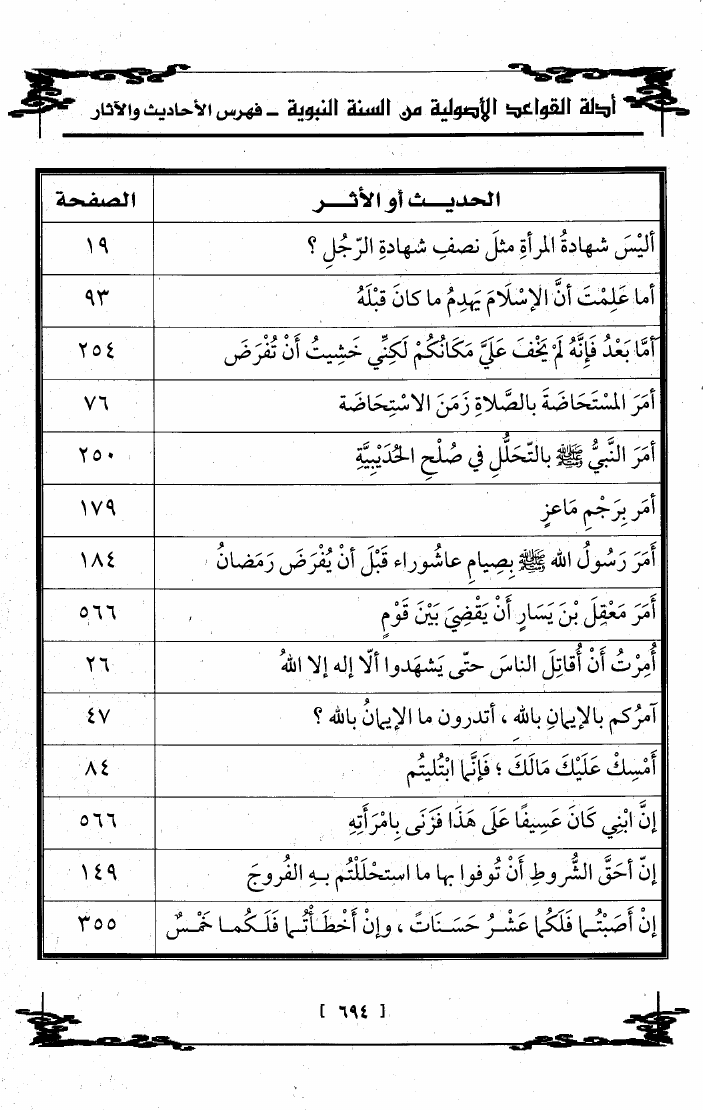 أدلة القواعد الأصولية من السنة النبوية – فهرس الأحاديث والآثار
الحديــث أو الأثــر الصفحة
أليْسَ شهادةُ المرأةِ مثلَ نصفِ شهادةِ الرّجُلِ ؟ ١٩
أما عَلِمْتَ أنَّ الإسْلَامَ يَهدِمُ ما كانَ قبْلَهُ ٩٣
أمَّا بَعْدُ فَإِنَّهُ لَمْ يَخْفَ عَلَيَّ مَكَانُكُمْ لَكِنِّي خَشِيتُ أَنْ تُفْرَضَ ٢٥٤
أمَرَ المسْتَحَاضَةَ بالصَّلاةِ زَمَنَ الاسْتِحَاضَة ٧٦
أمَرَ النَّبيُّ ﷺ بالتّحَلُّلِ في صُلْحِ الحُدَيْبِيَّةِ ٢٥٠
أمَر بِرَجْمِ مَاعزٍ ١٧٩
أَمَرَ رَسُولُ الله ﷺ بِصِيامِ عاشُوراء قَبْلَ أنْ يُفْرَضَ رَمَضانُ ١٨٤
أَمَرَ مَعْقِلَ بْنَ يَسَارٍ أَنْ يَقْضِيَ بَيْنَ قَوْمٍ ٥٦٦
أُمِرْتُ أَنْ أُقاتِلَ الناسَ حتّى يَشهَدوا ألّا إله إلا اللهُ ٢٦
آمرُكم بالإيمانِ باللهِ ، أتدرون ما الإيمانُ بالله ؟ ٤٧
أَمْسِكْ عَلَيْكَ مَالَكَ ؛ فَإِنَّما ابْتُليتُم ٨٤
إنَّ ابْنِي كَانَ عَسِيفًا عَلَى هَذَا فَزَنَى بِامْرَأَتِهِ ٥٦٦
إنّ أحَقَّ الشُّروطِ أَنْ تُوفوا بها ما استحْلَلْتُم بـهِ الفُروجَ ١٤٩
إنْ أَصَبْتُـما فَلَكُما عَشْـرُ حَسَـنَاتً ، وإنْ أَخْطَـأْتُـما فَلَـكُمـا خَمْـسٌ ٣٥٥
[ ٦٩٤ ]